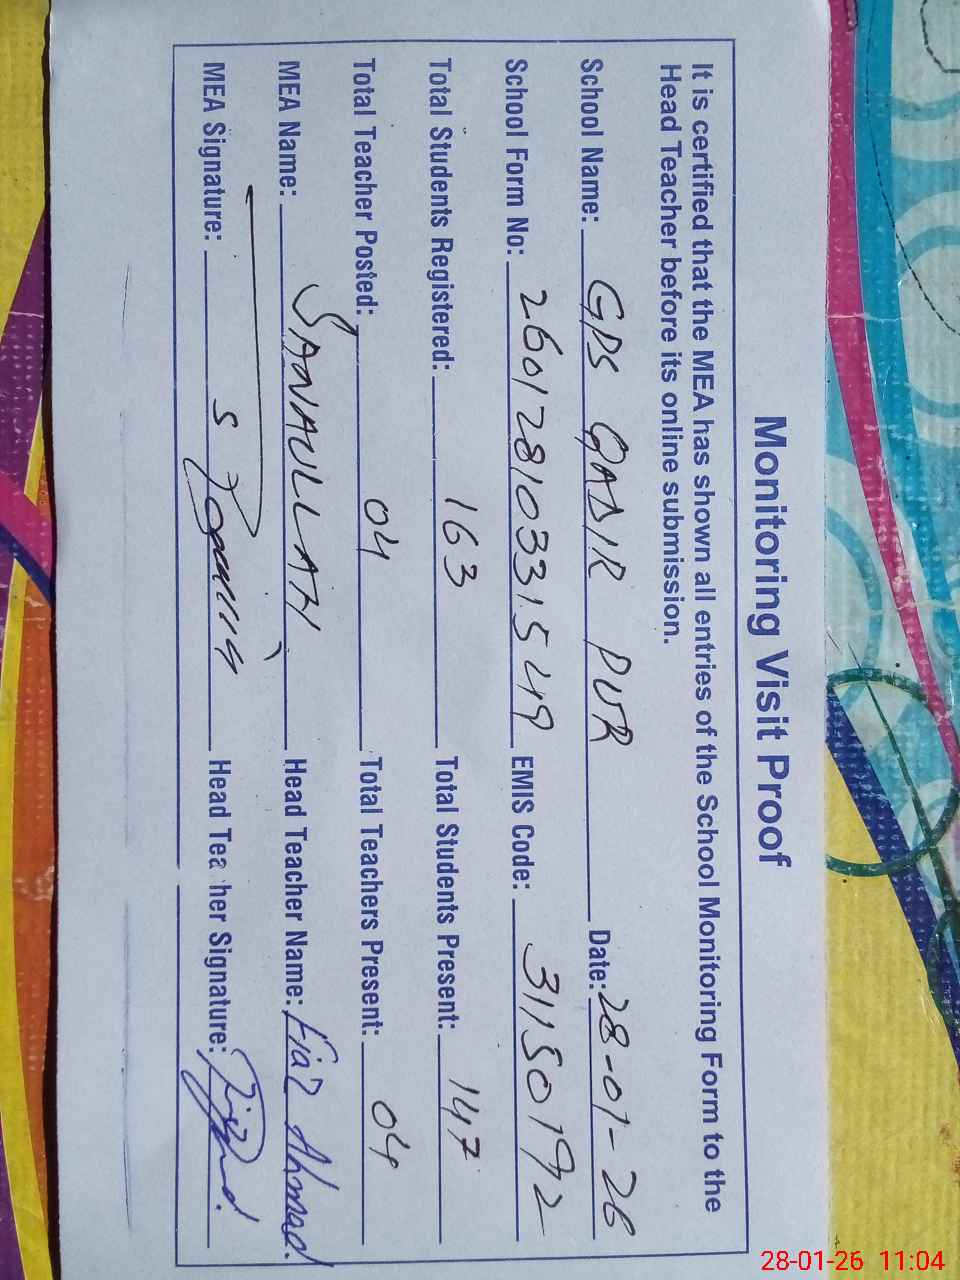 Monitoring Visit Proof
It is certified that the MEA has shown all entries of the School Monitoring Form to the
Head Teacher before its online submission.
School Name: GPS QADIR PUR Date: 28-01-26
School Form No: 26012810331549 EMIS Code: 31150192
Total Students Registered: 163 Total Students Present: 147
Total Teacher Posted: 04 Total Teachers Present: 04
MEA Name: SANAULLAH Head Teacher Name: Fiaz Ahmad.
MEA Signature: Head Teacher Signature:
28-01-26 11:04